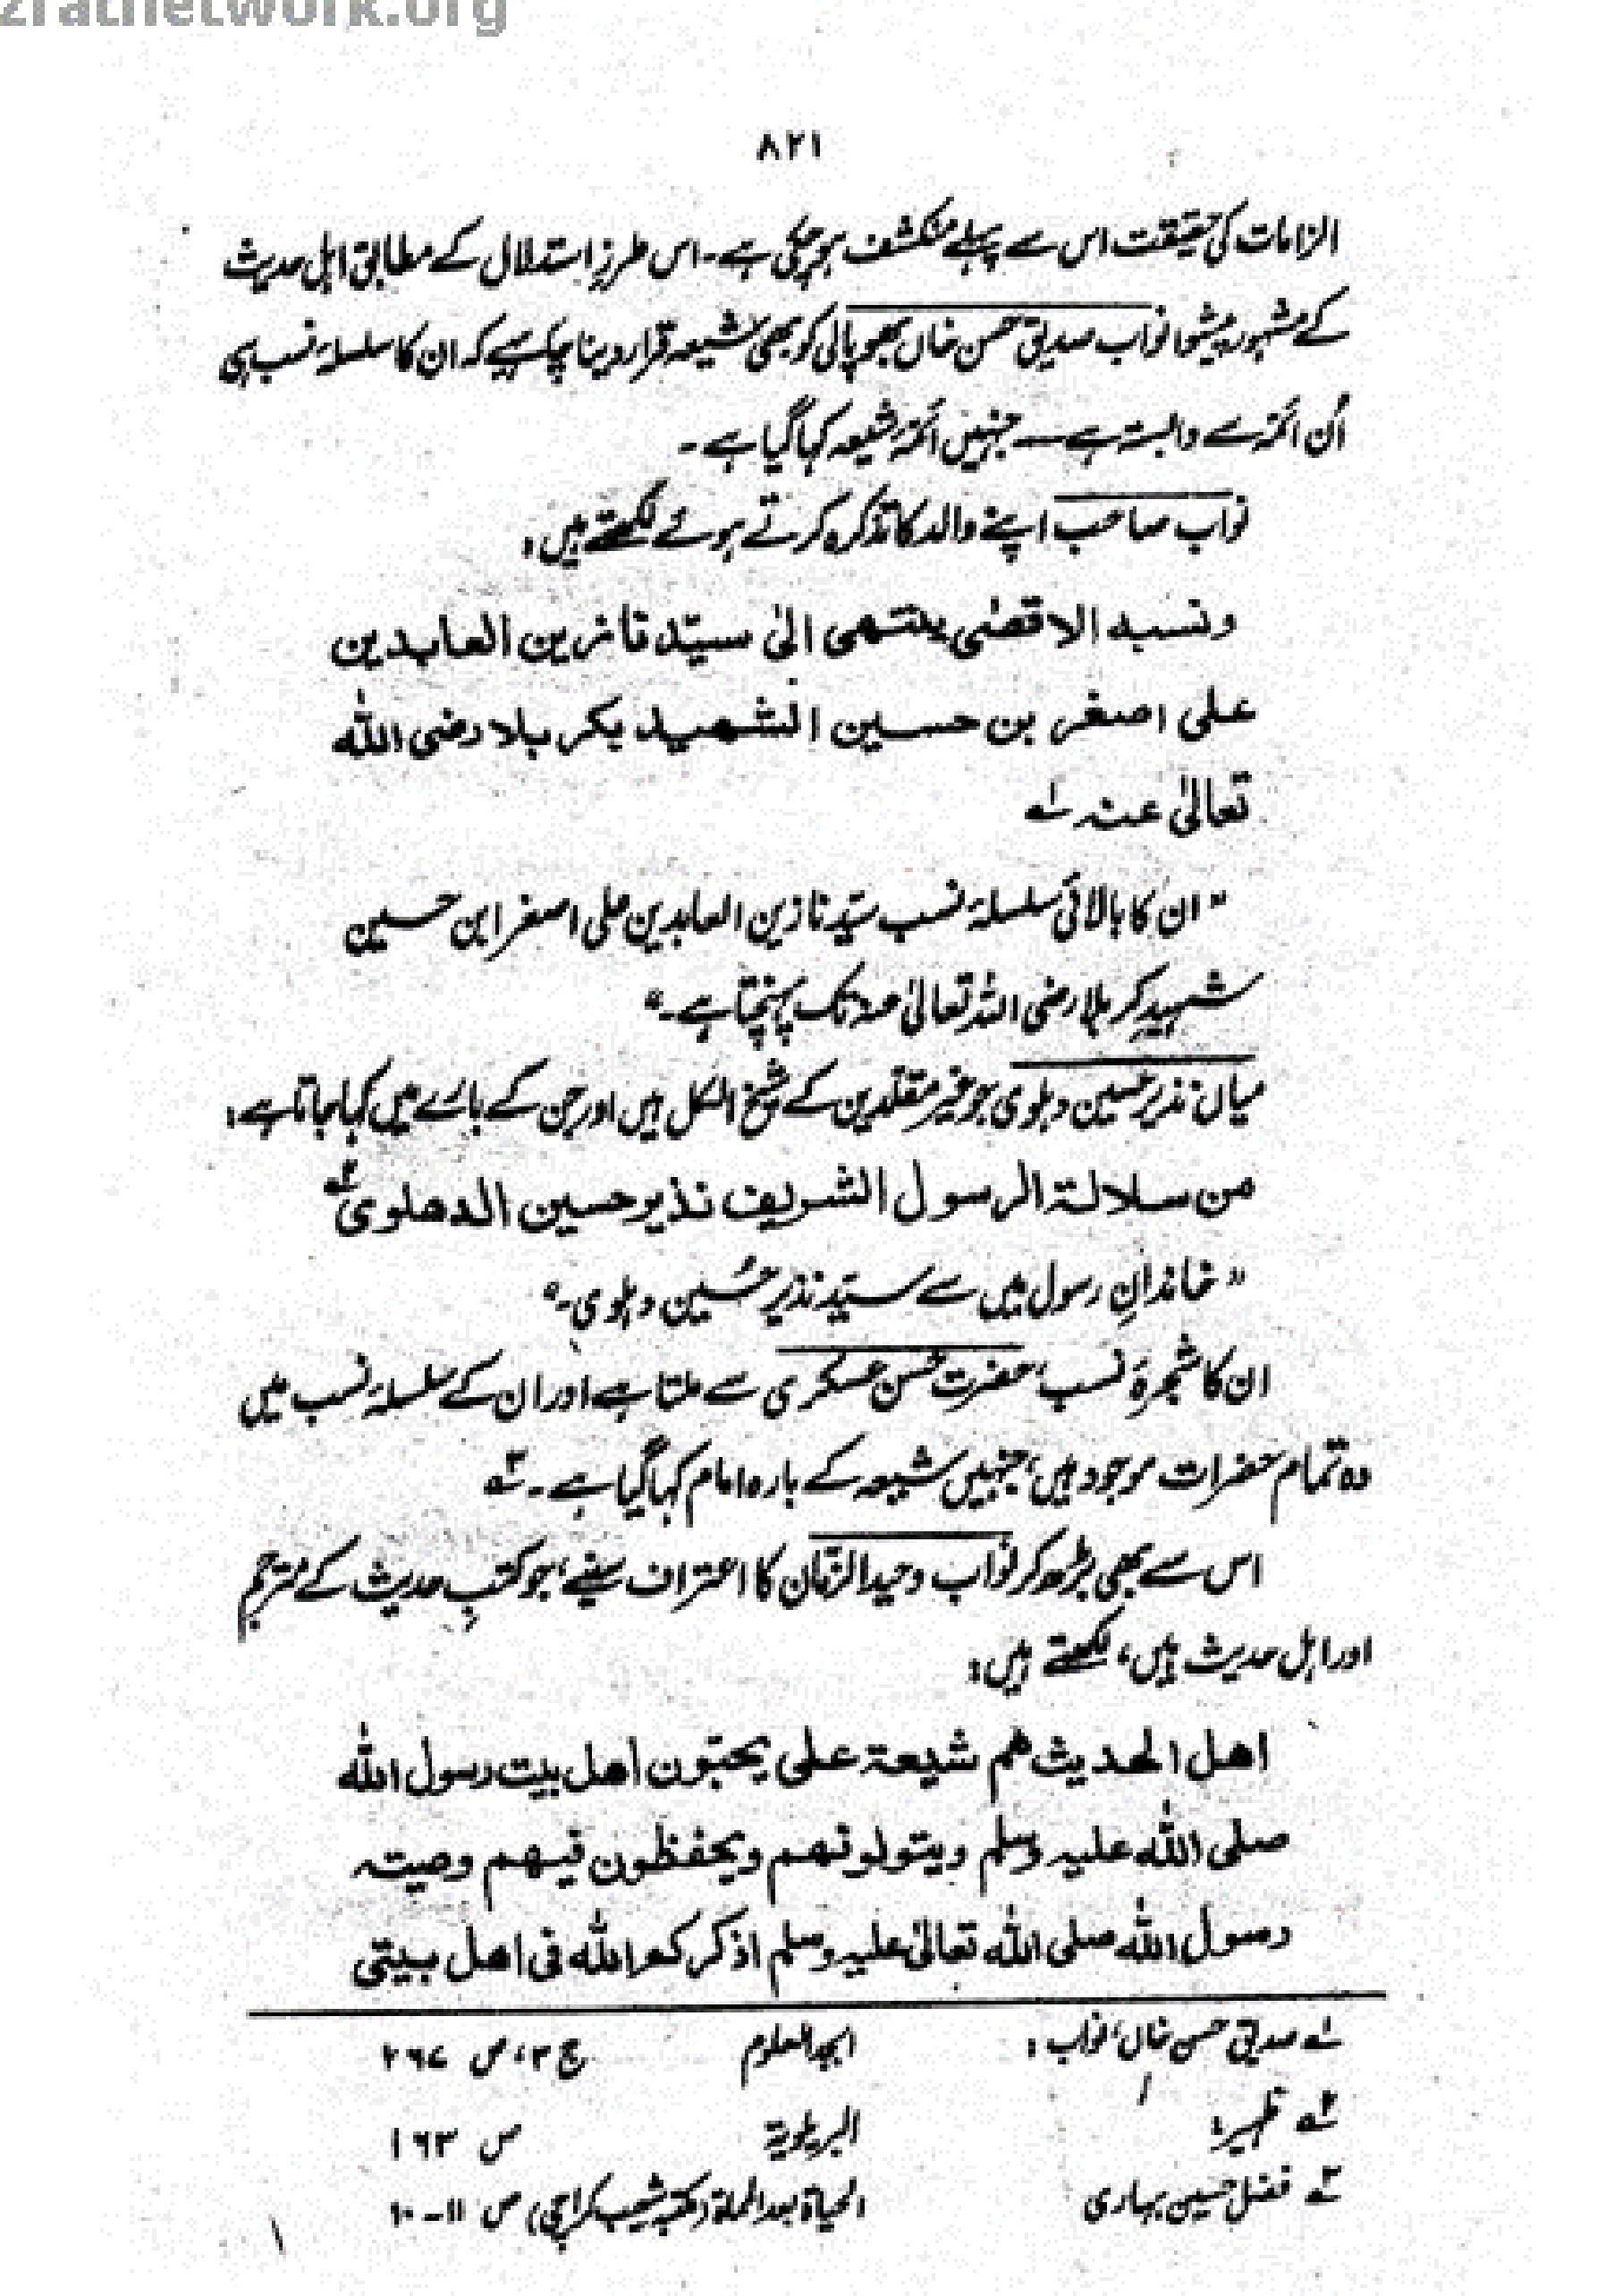 zratnetwork.org
۸۲۱
الزامات کی حقیقت اس سے پہلے منکشف ہو چکی ہے۔ اس طرزِ استدلال کے مطابق اہل حدیث
کے مشہور پیشوا نواب صدیق حسن خاں بھوپالی کو بھی شیعہ قرار دینا چاہیے کہ ان کا سلسلۂ نسب بھی
اُن ائمہ سے وابستہ ہے ــــ جنہیں ائمۂ شیعہ کہا گیا ہے۔
نواب صاحب اپنے والد کا تذکرہ کرتے ہوئے لکھتے ہیں:
ونسبہ الاقصٰی ینتھی الیٰ سیّدنا زین العابدین
علی اصغر بن حسین الشھید بکربلا رضی اللّٰہ
تعالیٰ عنہ ۱؎
"ان کا بالائی سلسلۂ نسب سیّدنا زین العابدین علی اصغر ابن حسین
شہیدِ کربلا رضی اللہ تعالیٰ عنہ تک پہنچتا ہے۔"
میاں نذیر حسین دہلوی جو غیر مقلدین کے شیخ الکل ہیں اور جن کے بارے میں کہا جاتا ہے:
من سلالۃ الرسول الشریف نذیر حسین الدھلوی ۲؎
"خاندانِ رسول میں سے سیّد نذیر حُسین دہلوی۔"
ان کا شجرۂ نسب، حضرت حسن عسکری سے ملتا ہے اور ان کے سلسلۂ نسب میں
وہ تمام حضرات موجود ہیں، جنہیں شیعہ کے بارہ امام کہا گیا ہے۔ ۳؎
اس سے بھی بڑھ کر نواب وحید الزّمان کا اعتراف سنیے، جو کتبِ حدیث کے مترجم
اور اہل حدیث ہیں، لکھتے ہیں:
اھل الحدیث ھم شیعۃ علی یحبّون اھل بیت رسول اللّٰہ
صلی اللّٰہ علیہ وسلم ویتولونھم ویحفظون فیھم وصیتہ
رسول اللّٰہ صلی اللّٰہ تعالیٰ علیہ وسلم اذکرکم اللّٰہ فی اھل بیتی
۱؎ صدیق حسن خاں، نواب: ابجد العلوم ج ۳، ص ۲۶۷
۲؎ ظہیر: البریلویۃ ص ۱۶۳
۳؎ فضل حسین بہاری الحیاۃ بعد المماۃ (مکتبہ شعیب کراچی) ص ۱۱-۱۰